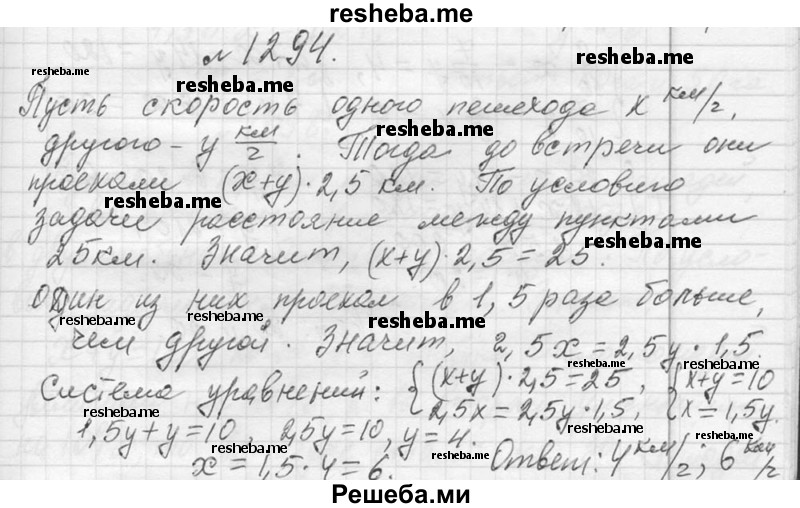 resheba.me
№ 1294.
resheba.me resheba.me resheba.me
Пусть скорость одного пешехода x км/г,
другого – y км/г. Тогда до встречи они
resheba.me
проехали (x+y)·2,5 км. По условию
resheba.me resheba.me
задачи расстояние между пунктами
25км. Значит, (x+y)·2,5=25.
resheba.me
один из них проехал в 1,5 раза больше,
resheba.me resheba.me resheba.me
чем другой. Значит, 2,5x=2,5y·1,5.
Система уравнений: {(x+y)·2,5=25, {x+y=10
2,5x=2,5y·1,5, {x=1,5y.
resheba.me
1,5y+y=10, 2,5y=10, y=4.
resheba.me resheba.me
x=1,5·4=6. Ответ: 4 км/г; 6 км/г
Решеба.ми